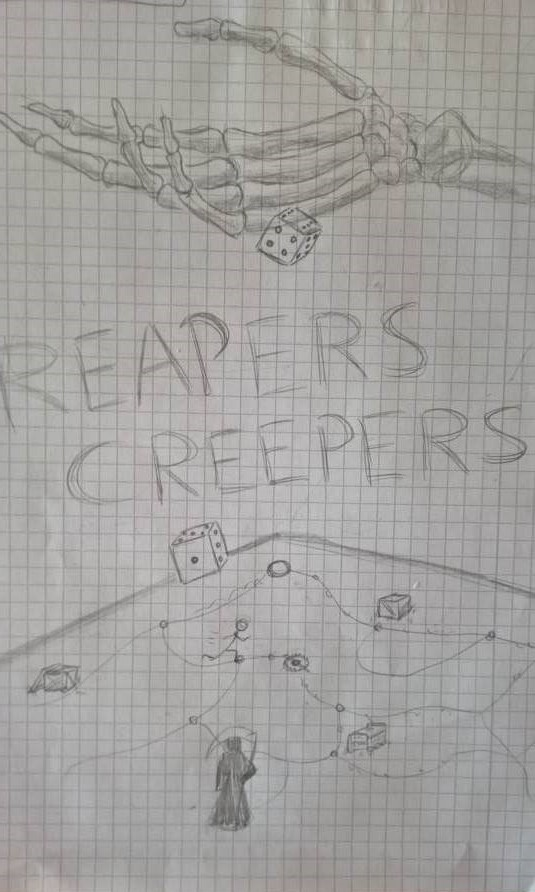 REAPERS
CREEPERS